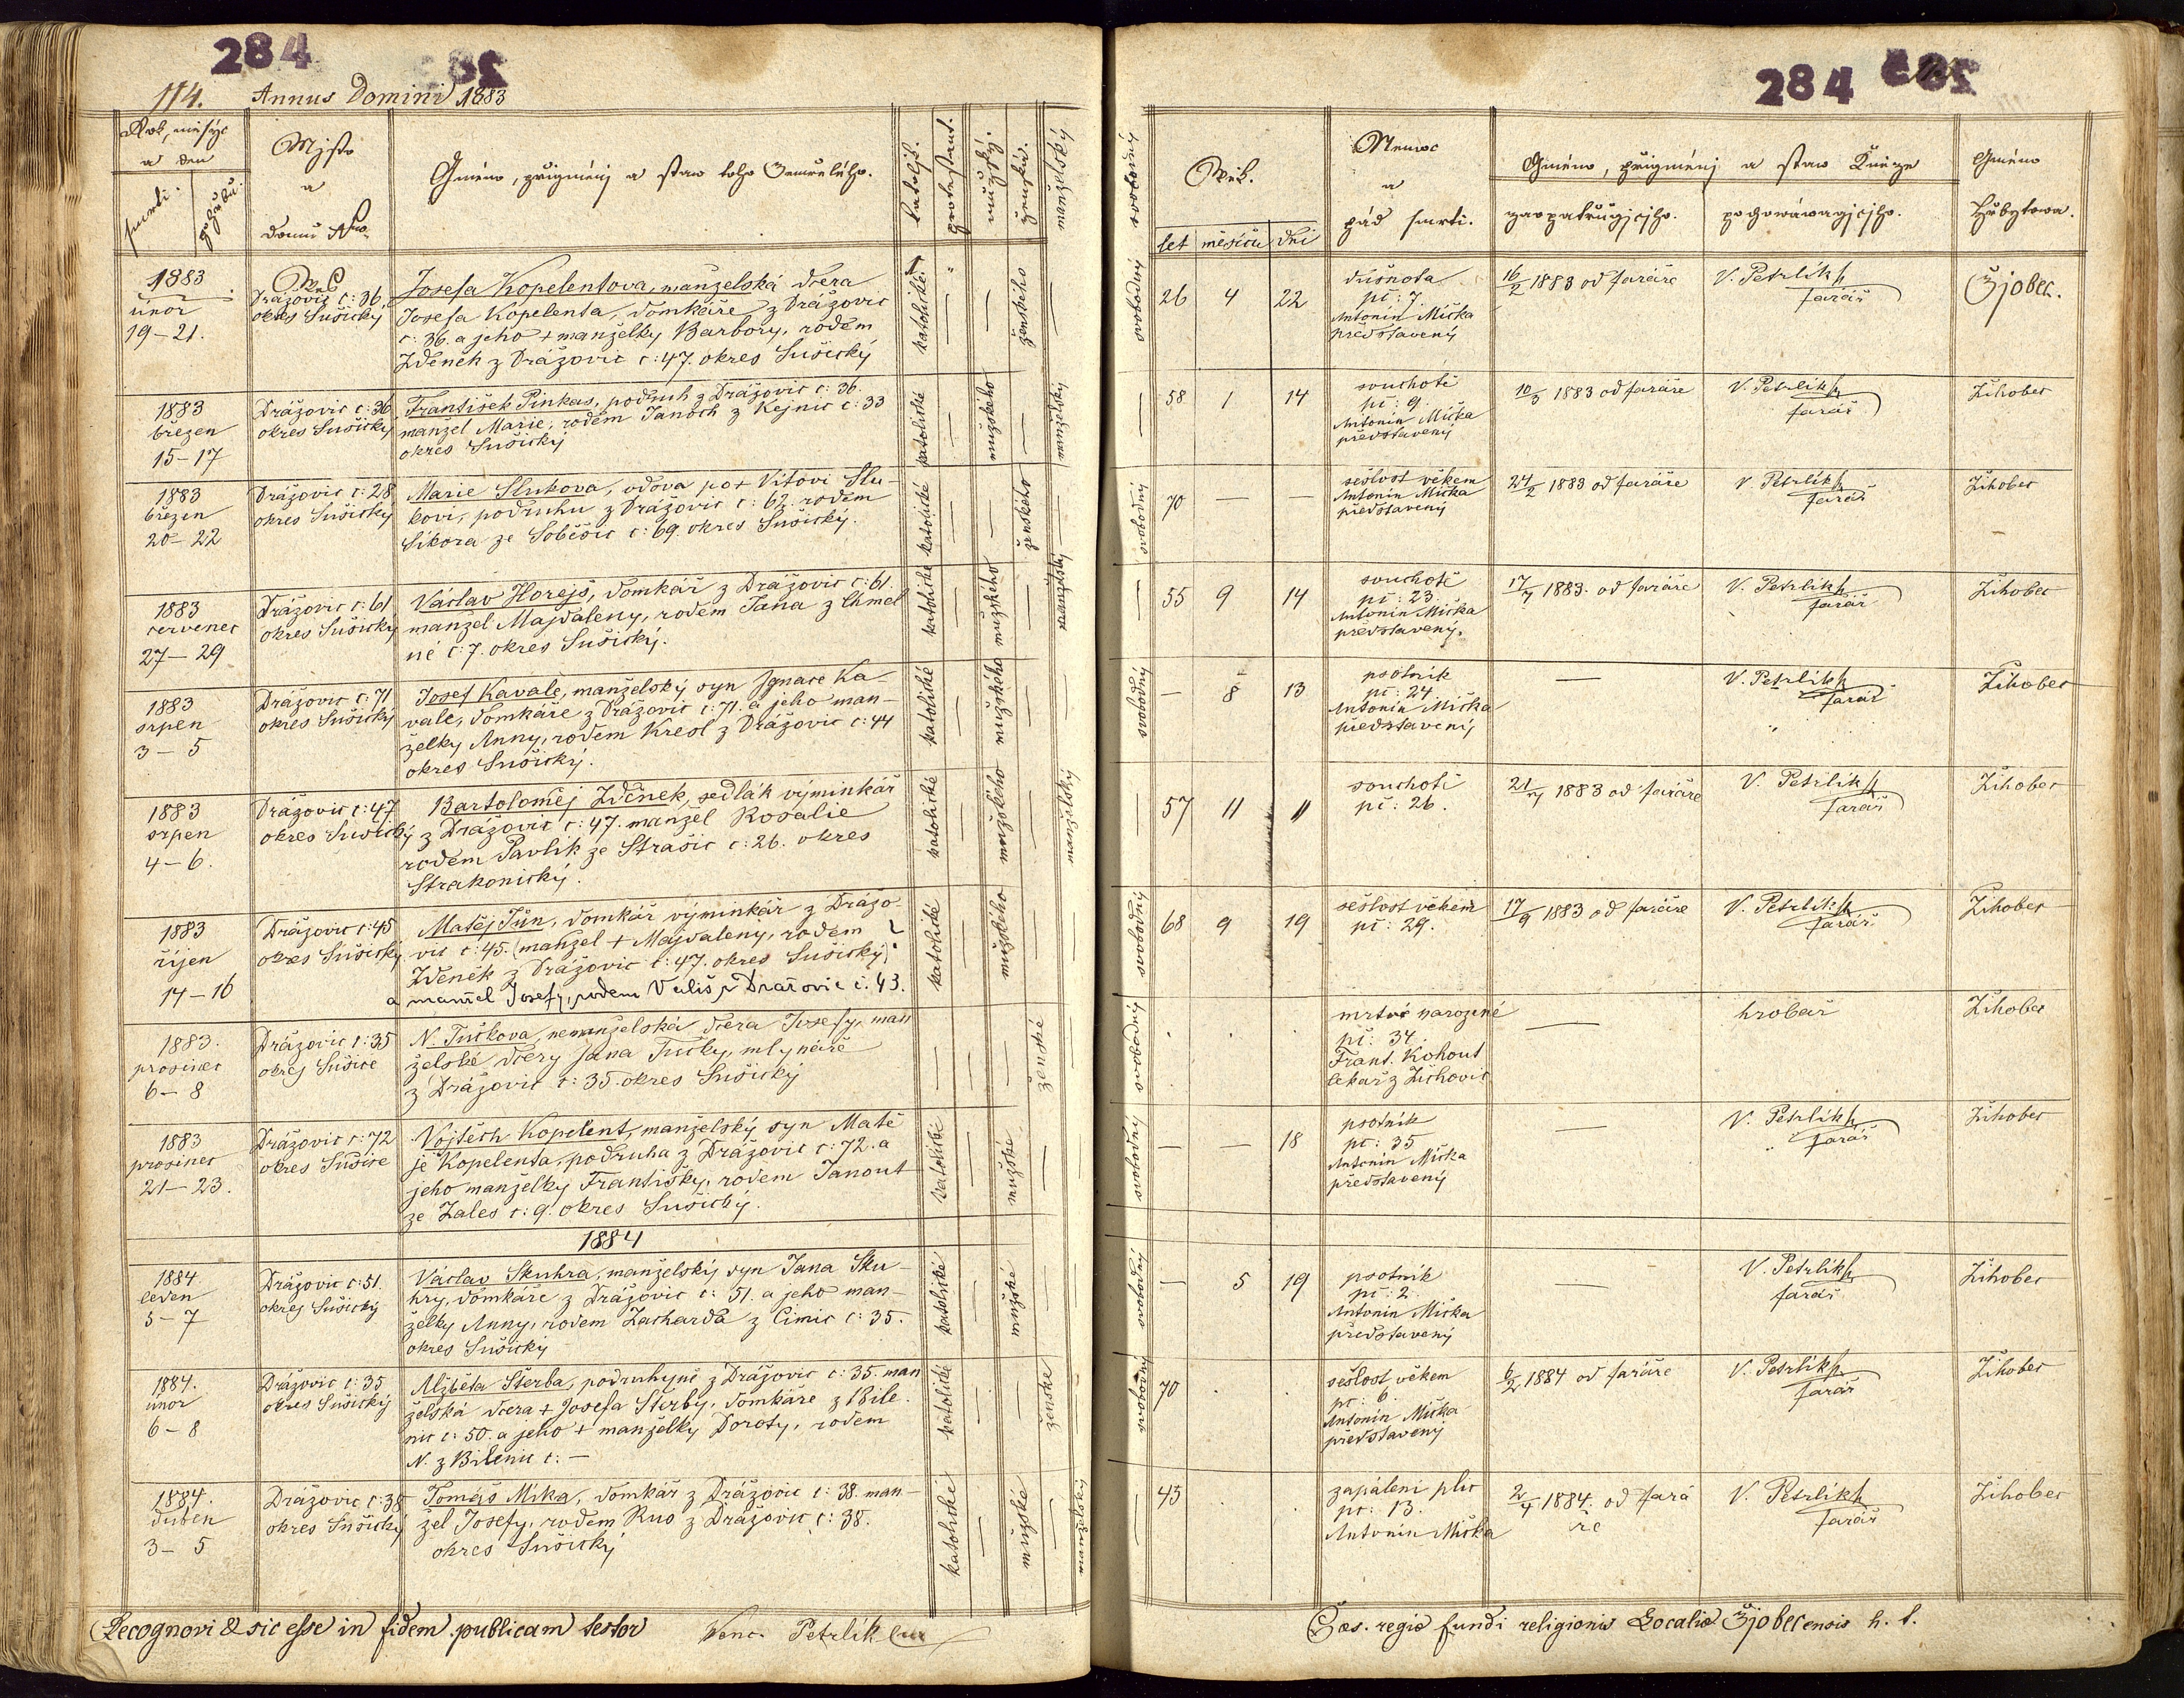 284
114. Annus Domini 1883
Rok, měsýc
a den
smrti.
pohřbu.
Mjsto
a
domu Nro.
Gméno, přigménj a staw toho Zemřelého.
katoljk.
protestant.
mužský.
ženská.
manželský
1883
únor
19-21.
Drážovic č: 36,
okres Sušický
Josefa Kopelentova, manželská dcera
Josefa Kopelenta, domkáře z Drážovic
č: 36. a jeho + manželky Barbory, rodem
Zdeněk z Drážovic č: 47. okres Sušický
katolické
ženského
1883
březen
15-17
Drážovic č: 36
okres Sušický
František Pinkas, podruh z Drážovic č: 36.
manžel Marie, rodem Janoch z Kejnic č: 33
okres Sušický
katolické
mužského
manželský
1883
březen
20-22
Drážovic č: 28
okres Sušický
Marie Slukova, vdova po + Vítovi Slu-
kovi, podruhu z Drážovic č: 62. rodem
Síkora ze Soběšic č: 69. okres Sušický.
katolické
ženského
1883
červenec
27-29
Drážovic č: 61
okres Sušický
Václav Horejš, domkář z Drážovic č: 61.
manžel Majdaleny, rodem Jana z Chmel
né č: 7. okres Sušický.
katolické
mužského
manželský
1883
srpen
3-5
Drážovic č: 71
okres Sušický
Josef Kavale, manželský syn Ignace Ka-
vale, domkáře z Drážovic č: 71. a jeho man-
želky Anny, rodem Kresl z Drážovic č: 44
okres Sušický.
katolické
mužského
1883
srpen
4-6.
Drážovic č: 47
okres Sušický
Bartoloměj Zděnek, sedlák výminkář
z Drážovic č: 47. manžel Rosalie
rodem Pavlík ze Strašic č: 26. okres
Strakonický.
katolické
mužského
manželský
1883
říjen
14-16
Drážovic č: 45
okres Sušický
Matěj Jůn, domkář výminkář z Drážo-
vic č: 45. (manžel + Majdaleny, rodem
Zdeněk z Drážovic č: 47. okres Sušický)
a manžel Josefy, rodem Vališ z Dražovic č. 43.
katolické
mužského
1883.
prosinec
6-8
Drážovic č: 35
okres Sušice
N. Tučkova, nemanželská dcera Josefy, man
želské dcery Jana Tučky, mlynáře
z Drážovic č: 35. okres Sušický
ženské
1883
prosinec
21-23.
Drážovic č: 72
okres Sušice
Vojtěch Kopelent, manželský syn Matě
je Kopelenta, podruha z Drážovic č: 72. a
jeho manželky Františky, rodem Janout
ze Zales č: 9. okres Sušický.
katolické
mužské
1884
1884
leden
5-7
Drážovic č: 51.
okres Sušický
Václav Skuhra, manželský syn Jana Sku-
hry, domkáře z Drážovic č: 51. a jeho man-
želky Anny, rodem Zacharda z Čimic č: 35.
okres Sušický
katolické
mužské
1884.
únor
6-8
Drážovic č: 35
okres Sušický
Alžběta Šterba, podruhyně z Drážovic č: 35. man
želská dcera + Josefa Štérby, domkáře z Bile-
nic č: 50. a jeho + manželky Doroty, rodem
N. z Bilenic č: —
katolické
ženské
1884.
duben
3-5
Drážovic č: 38
okres Sušický
Tomáš Mika, domkář z Drážovic č: 38. man-
žel Josefy, rodem Rus z Drážovic č: 38.
okres Sušický
katolické
mužské
manželský
Recognovi & sic esse in fidem publicam testor Venc. Petrlík
284
svobodný
Wěk.
let měsíců dní
Nemoc
a
pád smrti.
Gméno, přigménj a staw Kněze
zaopatřugjcjho.
pochowáwagjcjho.
Gméno
Hřbytowa.
svobodný
26 4 22
dušnota
pč: 7.
Antonín Mička
představený
16/2 1883 od faráře
V. Petrlík
farář
Žjobec.
58 1 14
souchotě
pč: 9.
Antonín Mička
představený
10/3 1883 od faráře
V. Petrlík
farář
Žihobec
svobodný
70 —
sešlost věkem
Antonín Mička
představený
24/2 1883 od faráře
V. Petrlík
farář
Žihobec
55 9 14
souchotě
pč: 23.
Antonín Mička
představený.
17/7 1883. od faráře
V. Petrlík
farář
Žihobec
svobodný
— 8 13
psotník
pč: 24.
Antonín Mička
představený
—
V. Petrlík
farář
Žihobec
57 11 11
souchotě
pč: 26.
21/7 1883 od faráře
V. Petrlík
farář
Žihobec
svobodný
68 9 19
sešlost věkem
pč: 29.
17/9 1883 od faráře
V. Petrlík
farář
Žihobec
svobodný
mrtvě narozené
pč: 34.
Frant. Kohout
lékař z Žichovic
—
hrobař
Žihobec
svobodný
— — 18
psotník
pč: 35
Antonín Mička
představený
—
V. Petrlík
farář
Žihobec
svobodný
— 5 19
psotník
pč: 2.
Antonín Mička
představený
—
V. Petrlík
farář
Žihobec
svobodný
70
sešlost věkem
pč: 6.
Antonín Mička
představený
6/2 1884 od faráře
V. Petrlík
farář
Žihobec
45
zapálení plic
pč: 13.
Antonín Mička
2/4 1884. od fará
ře
V. Petrlík
farář
Žihobec
Caes. regio fundi religionis Localia Žjobecensis h. t.